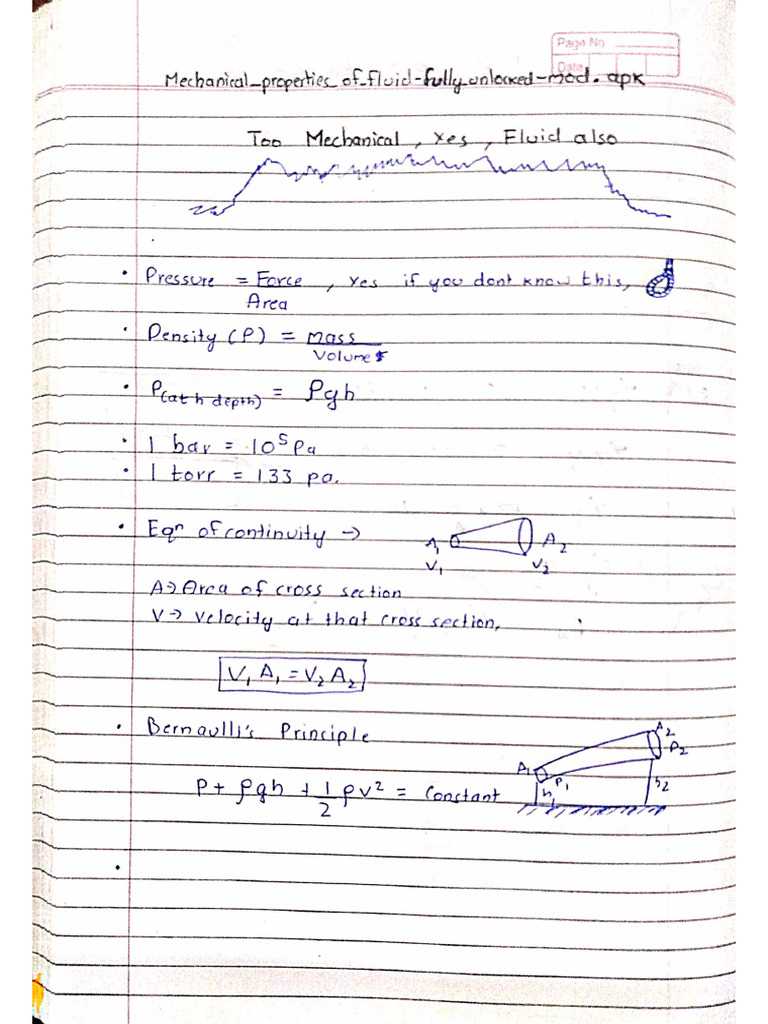 Page No
Date
Mechanical_properties_of_fluid-fully_unlocked-mod.apk
Too Mechanical, Yes, Fluid also
• Pressure = Force , Yes if you dont know this,
Area
• Density (ρ) = mass
Volume
• P(at h depth) = ρgh
• 1 bar = 10⁵ Pa
• 1 torr = 133 pa.
• Eqⁿ of continuity →
A₁ A₂
V₁ V₂
A → Area of cross section
V → Velocity at that cross section,
V₁ A₁ = V₂ A₂
• Bernaulli's Principle
A₂
P₂
A₁
P₁
h₁
h₂
P + ρgh + 1/2 ρv² = Constant
•